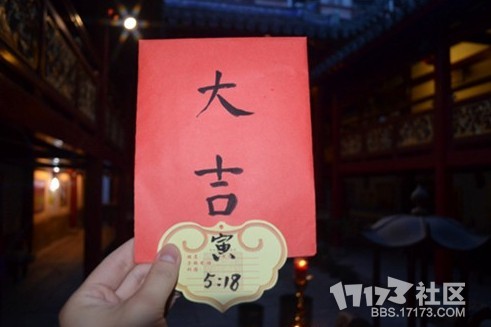 大
吉
寅
5:18
17173社区
BBS.17173.COM